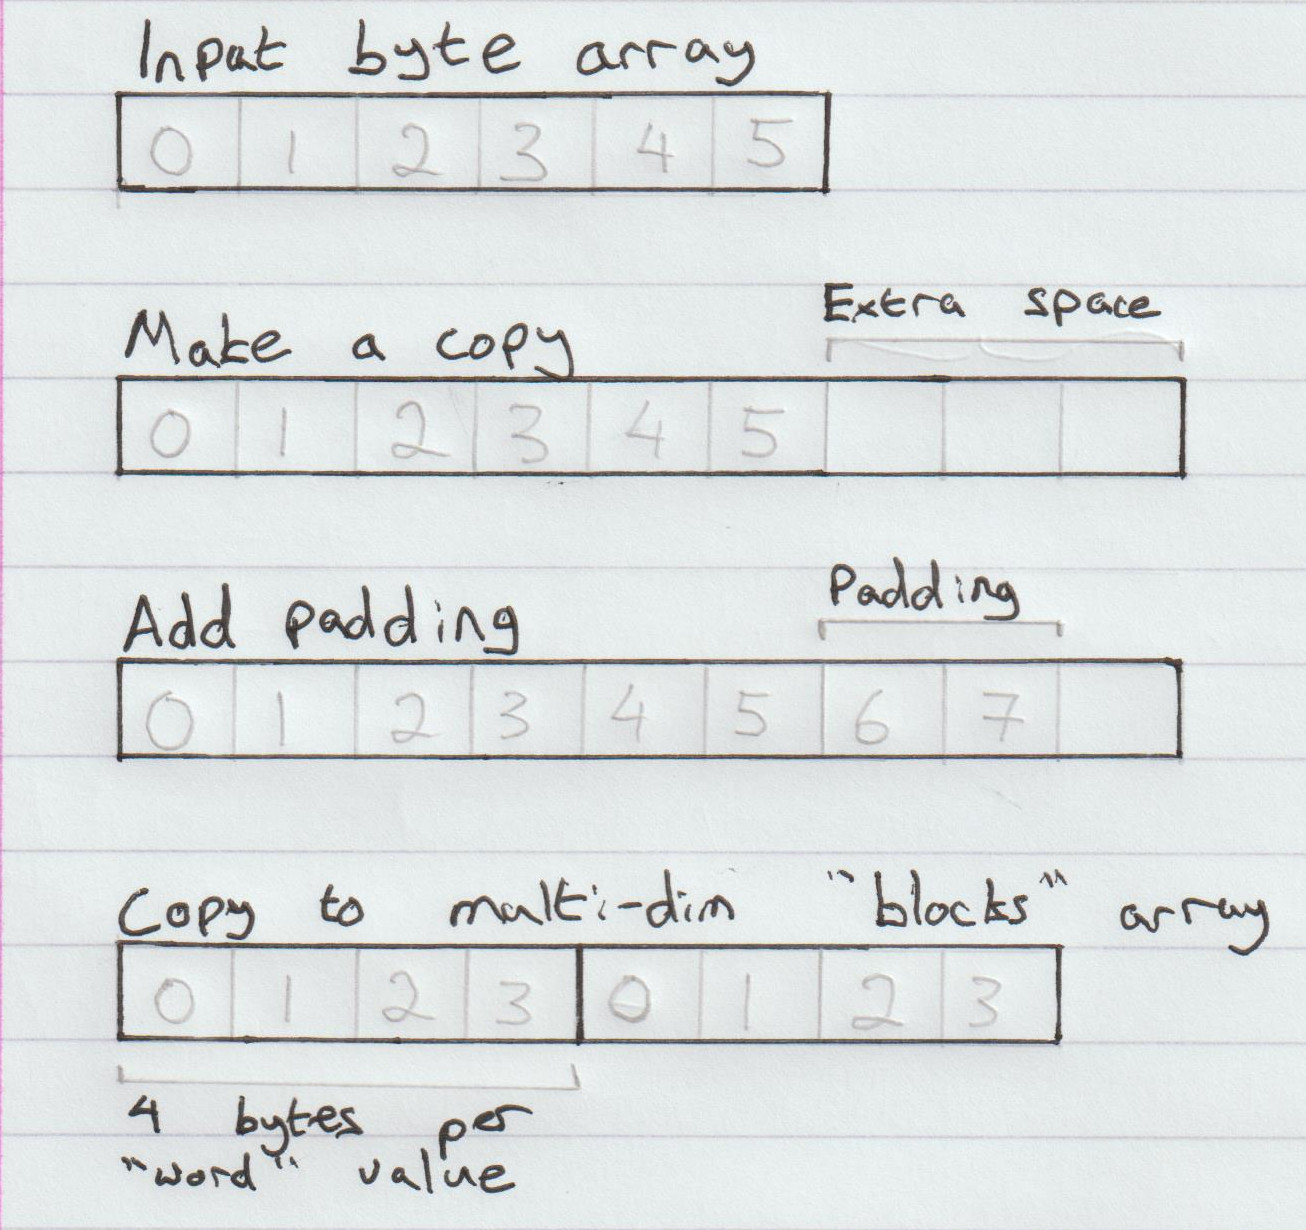 Input byte array
0 1 2 3 4 5
Extra space
Make a copy
0 1 2 3 4 5
Padding
Add padding
0 1 2 3 4 5 6 7
Copy to multi-dim "blocks" array
0 1 2 3 0 1 2 3
4 bytes per
"word" value